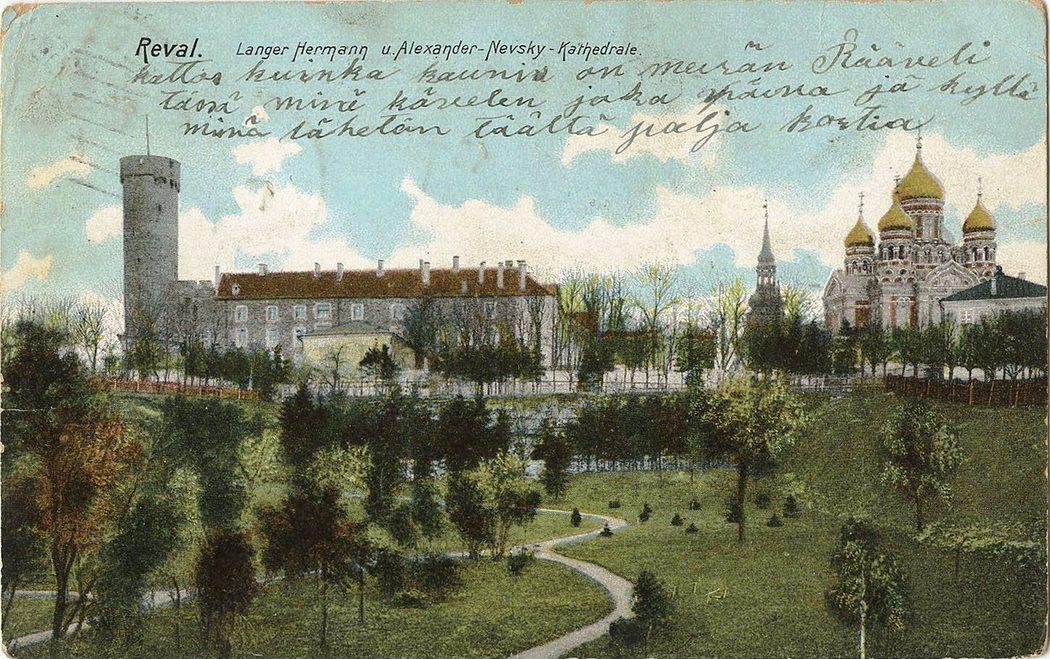 Reval. Langer Hermann u. Alexander-Nevsky-Kathedrale.
kattos kuinka kaunis on meirän Rääveli
tässä minä kävelen joka päivä ja kyllä
minä lähetän täältä palja kortia